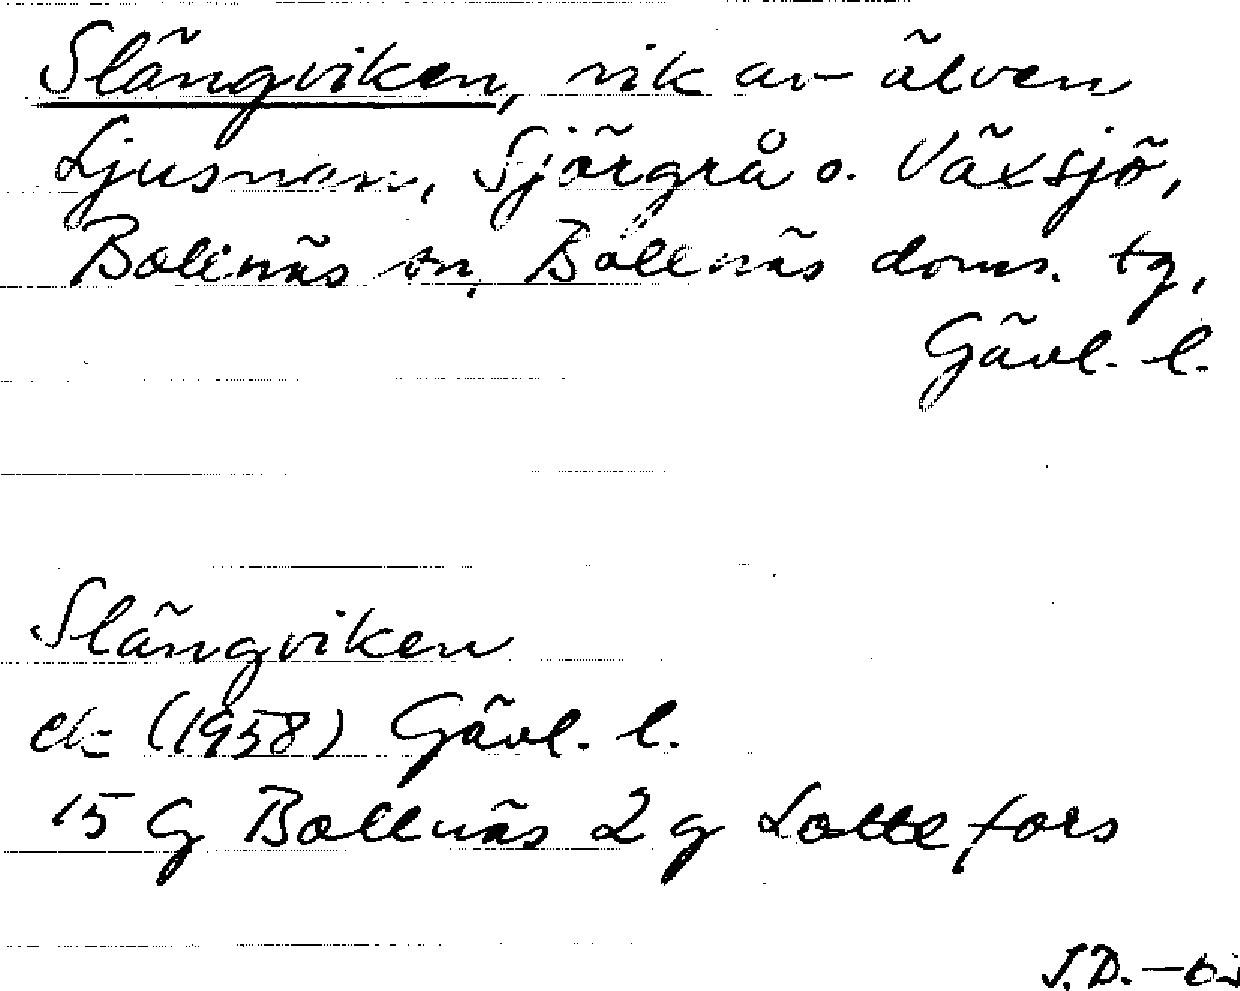 Slängviken, vik av älven
Ljusnan, Sjörgrå o. Växsjö,
Bollnäs sn, Bollnäs doms. tg,
Gävl. l.
Slängviken
ek (1958) Gävl. l.
15 G Bollnäs 2 g Lottefors
S.D.